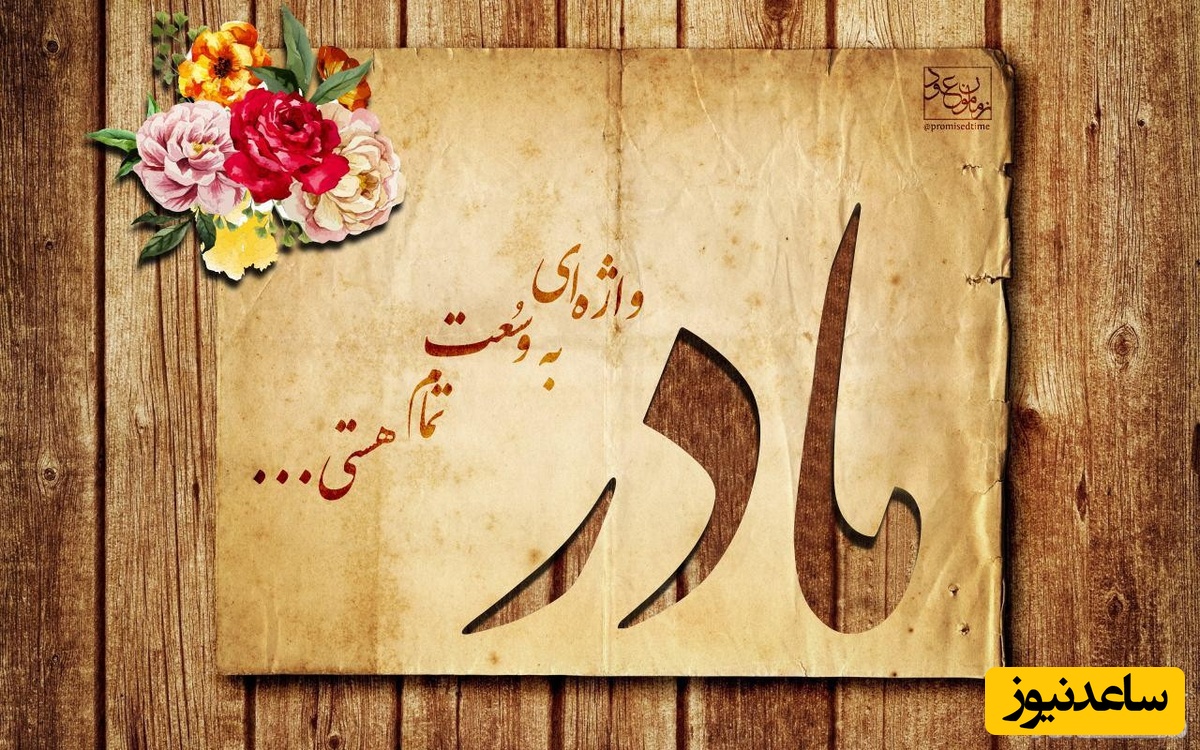 زمان موعود
@promisedtime
مادر
واژه‌ای
به وسُعت
تمام
هستی...
ساعدنیوز